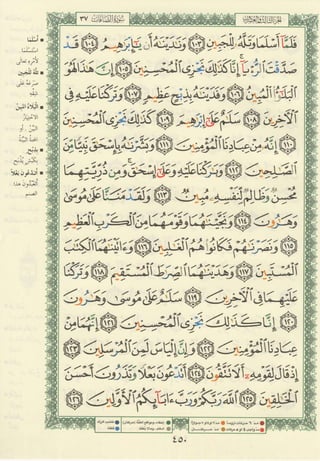 سُورَةُ الصَّافَّات
٣٧
فَلَمَّآ أَسْلَمَا وَتَلَّهُۥ لِلْجَبِينِ ١٠٣ وَنَٰدَيْنَٰهُ أَن يَٰٓإِبْرَٰهِيمُ ١٠٤ قَدْ
صَدَّقْتَ ٱلرُّءْيَآ إِنَّا كَذَٰلِكَ نَجْزِى ٱلْمُحْسِنِينَ ١٠٥ إِنَّ هَٰذَا لَهُوَ
ٱلْبَلَٰٓؤُا۟ ٱلْمُبِينُ ١٠٦ وَفَدَيْنَٰهُ بِذِبْحٍ عَظِيمٍ ١٠٧ وَتَرَكْنَا عَلَيْهِ فِى
ٱلْءَاخِرِينَ ١٠٨ سَلَٰمٌ عَلَىٰٓ إِبْرَٰهِيمَ ١٠٩ كَذَٰلِكَ نَجْزِى ٱلْمُحْسِنِينَ
١١٠ إِنَّهُۥ مِنْ عِبَادِنَا ٱلْمُؤْمِنِينَ ١١١ وَبَشَّرْنَٰهُ بِإِسْحَٰقَ نَبِيًّا مِّنَ
ٱلصَّٰلِحِينَ ١١٢ وَبَٰرَكْنَا عَلَيْهِ وَعَلَىٰٓ إِسْحَٰقَ وَمِن ذُرِّيَّتِهِمَا
مُحْسِنٌ وَظَالِمٌ لِّنَفْسِهِۦ مُبِينٌ ١١٣ وَلَقَدْ مَنَنَّا عَلَىٰ مُوسَىٰ
وَهَٰرُونَ ١١٤ وَنَجَّيْنَٰهُمَا وَقَوْمَهُمَا مِنَ ٱلْكَرْبِ ٱلْعَظِيمِ
١١٥ وَنَصَرْنَٰهُمْ فَكَانُوا۟ هُمُ ٱلْغَٰلِبِينَ ١١٦ وَءَاتَيْنَٰهُمَا ٱلْكِتَٰبَ
ٱلْمُسْتَبِينَ ١١٧ وَهَدَيْنَٰهُمَا ٱلصِّرَٰطَ ٱلْمُسْتَقِيمَ ١١٨ وَتَرَكْنَا
عَلَيْهِمَا فِى ٱلْءَاخِرِينَ ١١٩ سَلَٰمٌ عَلَىٰ مُوسَىٰ وَهَٰرُونَ
١٢٠ إِنَّا كَذَٰلِكَ نَجْزِى ٱلْمُحْسِنِينَ ١٢١ إِنَّهُمَا مِنْ
عِبَادِنَا ٱلْمُؤْمِنِينَ ١٢٢ وَإِنَّ إِلْيَاسَ لَمِنَ ٱلْمُرْسَلِينَ ١٢٣
إِذْ قَالَ لِقَوْمِهِۦٓ أَلَا تَتَّقُونَ ١٢٤ أَتَدْعُونَ بَعْلًا وَتَذَرُونَ أَحْسَنَ
ٱلْخَٰلِقِينَ ١٢٥ ٱللَّهَ رَبَّكُمْ وَرَبَّ ءَابَآئِكُمُ ٱلْأَوَّلِينَ ١٢٦
٤٥٠